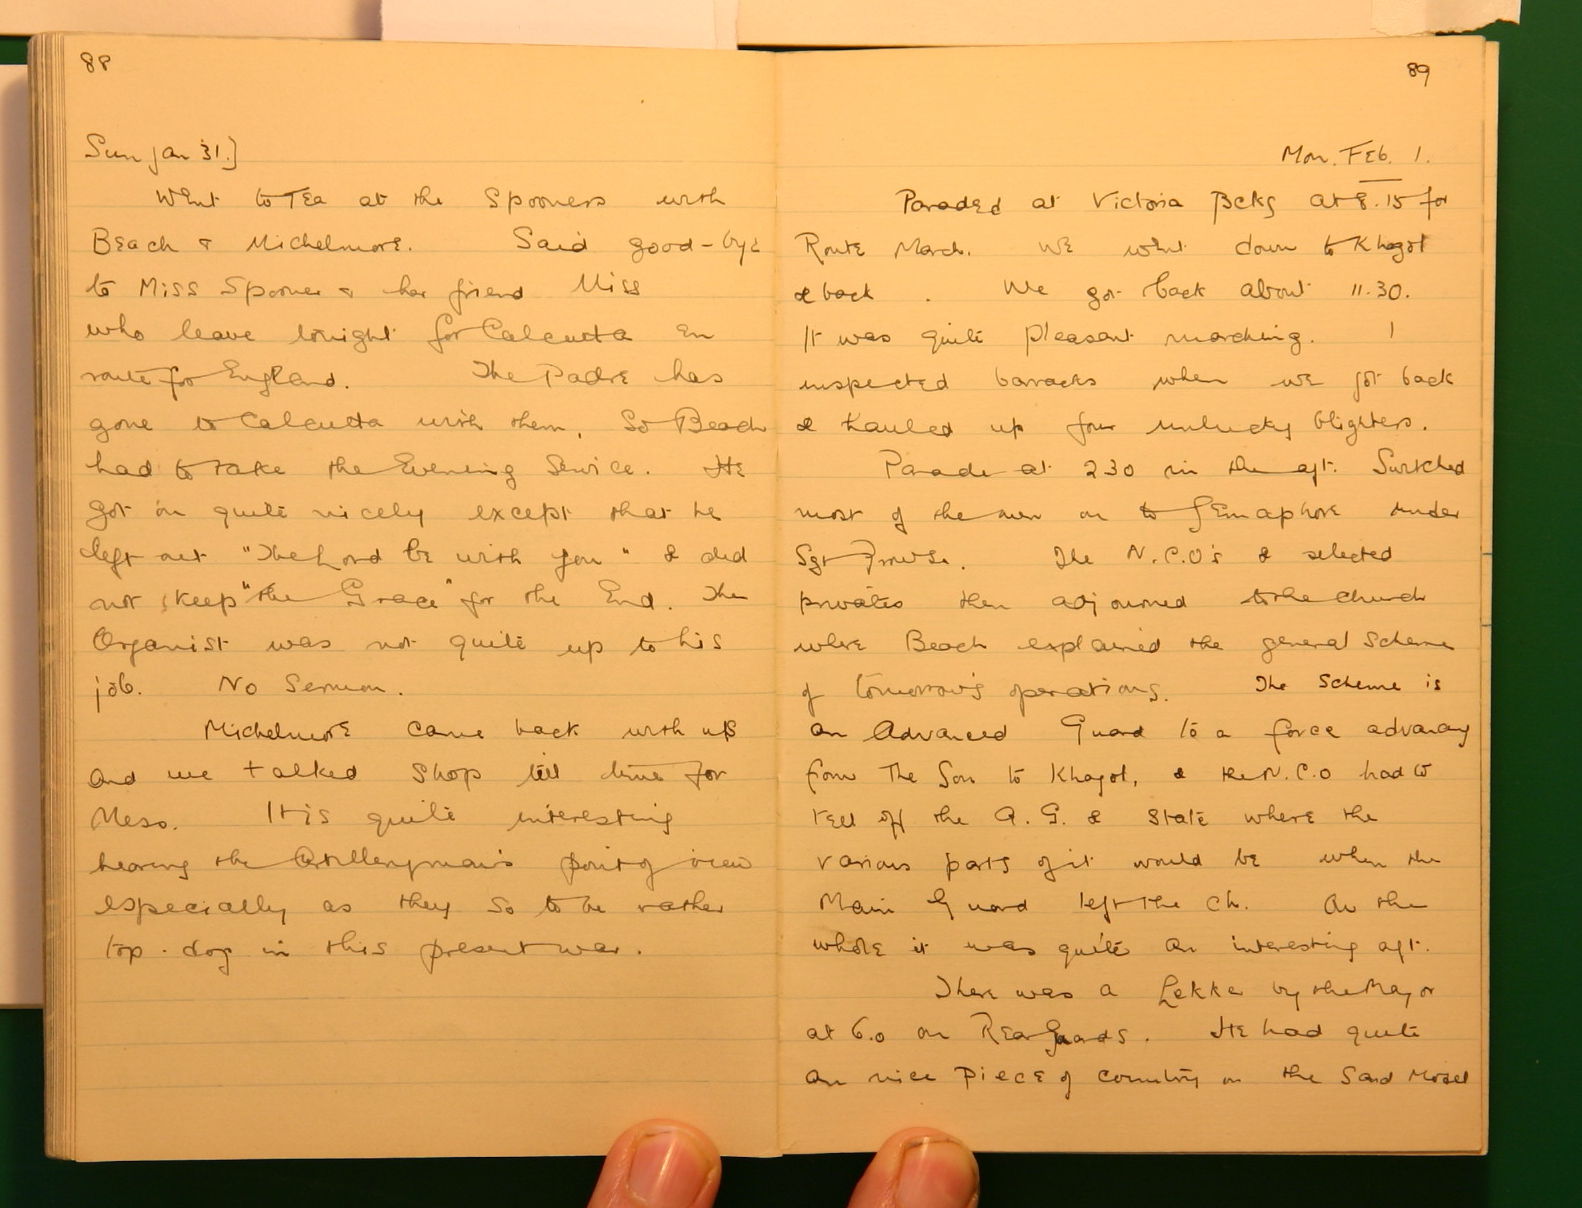 88
Sun Jan 31.]
Went to Tea at the Spooners with
Beach & Michelmore. Said good-bye
to Miss Spooner & her friend Miss
who leave tonight for Calcutta en
route for England. The Padre has
gone to Calcutta with them, so Beach
had to take the Evening Service. He
got on quite nicely except that he
left out "The Lord be with you" & did
not keep "the Grace" for the End. The
Organist was not quite up to his
job. No Sermon.
Michelmore came back with us
and we talked shop till time for
Mess. It is quite interesting
hearing the Artilleryman's point of view
especially as they so to be rather
top-dog in this present war.
89
Mon. Feb. 1.
Paraded at Victoria Bcks at 8.15 for
Route March. We went down to Khagol
& back. We got back about 11.30.
It was quite pleasant marching. I
inspected barracks when we got back
& hauled up four unlucky blighters.
Parade at 2 30 in the aft. Switched
most of the men on to Semaphore under
Sgt Prowse. The N.C.O's & selected
privates then adjourned to the church
where Beach explained the general scheme
of tomorrow's operations. The scheme is
an Advanced Guard to a force advancing
from The Son to Khagol, & the N.C.O had to
tell off the A.G. & state where the
various parts of it would be when the
Main Guard left the Ch. On the
whole it was quite an interesting aft.
There was a Lekker by the Major
at 6.0 on Rear Guards. He had quite
an nice piece of country on the Sand Model